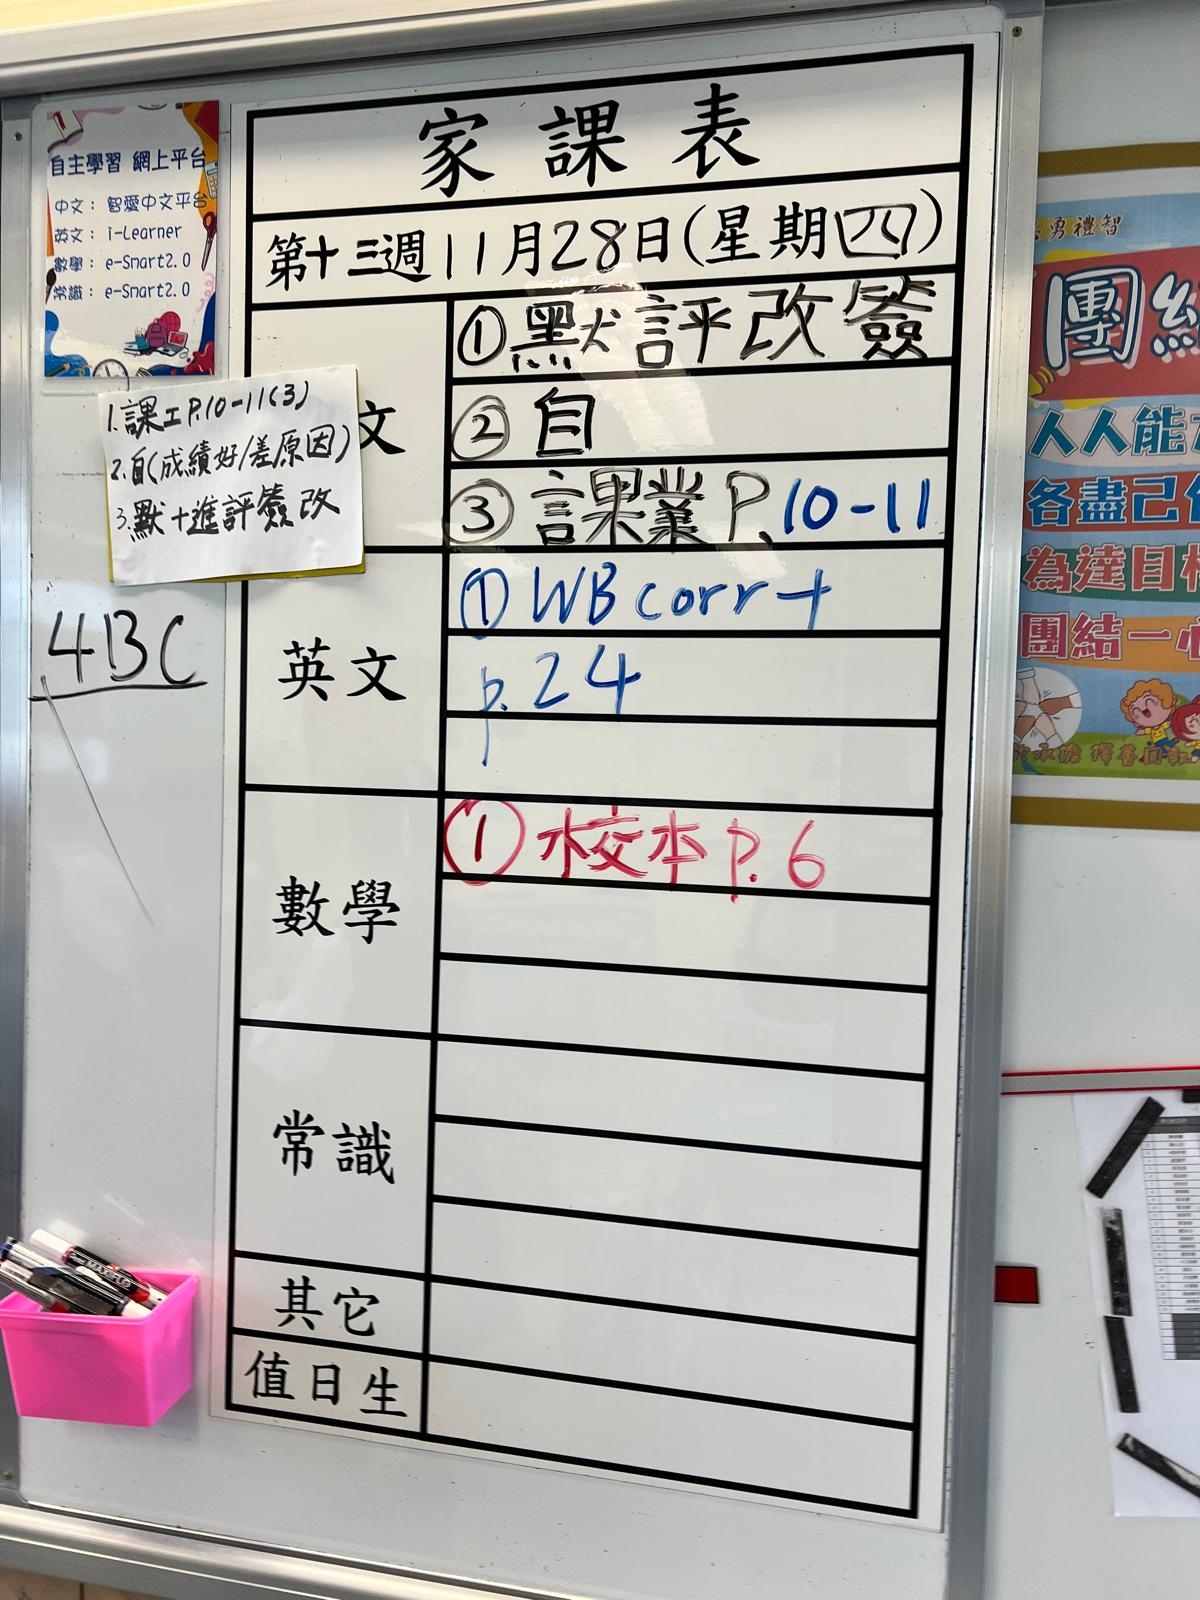 自主學習 網上平台
中文：智愛中文平台
英文：i-Learner
數學：e-Smart2.0
常識：e-Smart2.0
1.課工P.10-11(3)
2.自(成績好/差原因)
3.默+進評簽改
4BC
家課表
第十三週11月28日(星期四)
文
①默評改簽
②自
③課業P.10-11
英文
①WB corr +
p.24
數學
①校本P.6
常識
其它
值日生
勇禮智
團結
人人能
各盡己
為達目標
團結一心